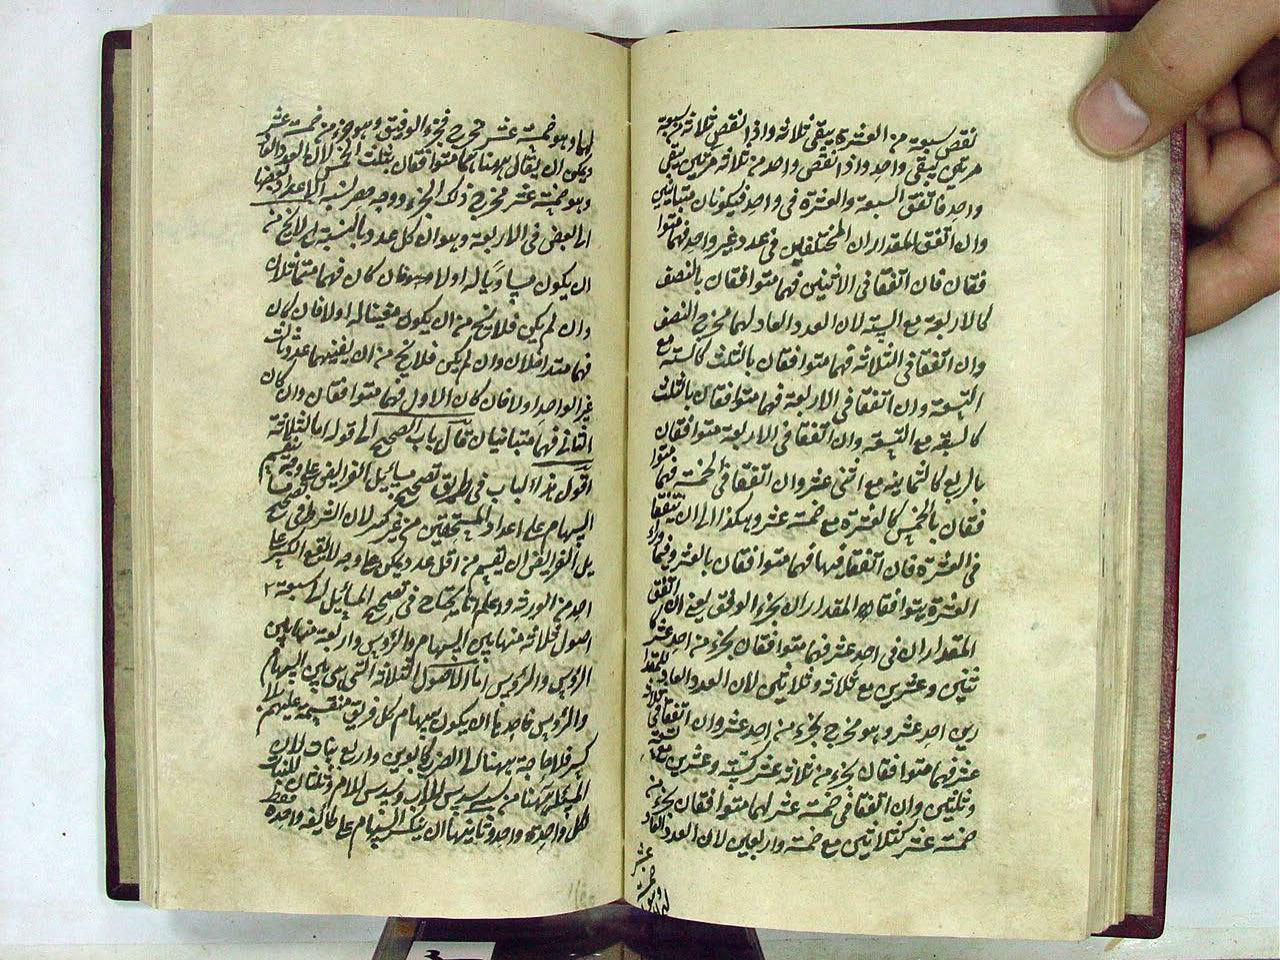 نقص سبعة من العشرة يبقى ثلاثة واذا نقص ثلاثة من سبعة
مرتين يبقى واحد واذا نقص واحد من ثلاثة مرتين يبقى
واحد فاتفق السبعة والعشرة في واحد فيكونان متباينين
وان اتفق المقداران المختلفين في عدد غير واحد فهما متوا
فقان فان اتفقا في الاثنين فهما متوافقان بالنصف
كالاربعة مع الستة لان العدد العاد لهما مخرج النصف
وان اتفقا في الثلاثة فهما متوافقان بالثلث كالستة مع
التسعة وان اتفقا في الاربعة فهما متوافقان بالثلث
كالستة مع التسعة وان اتفقا في الاربعة متوافقان
بالربع كالثمانية مع اثنى عشر وان اتفقا في الخمسة فهما متوا
فقان بالخمس كالعشرة مع خمسة عشر وهكذا الى ان يتفقا
في العشرة فان اتفقا فيها فهما متوافقان بالعشر وفيما وراء
العشرة يتوافقان المقداران بجزء الوفق يعني ان اتفق
المقداران في احد عشر فهما متوافقان بجزء من احد عشر كا
ثنين وعشرين مع ثلاثة وثلاثين لان العدد العاد للمقدا
رين احد عشر وهو مخرج لجزء من احد عشر وان اتفقا في ثلاثة
عشر فهما متوافقان بجزء من ثلاثة عشر كستة وعشرين مع تسعة
وثلثين وان اتفقا في خمسة عشر لهما متوافقان بجزء من
خمسة عشر كثلاثين مع خمسة واربعين لان العدد العاد
لهما وهو خمسة عشر
لهما وهو خمسة عشر مخرج فجزء الوفق وهو جزء من خمسة عشر
ويمكن ان يقال ههنا هما متوافقان بثلث الخمس لان العدد العاد
وهو خمسة عشر مخرج ذلك الجزء ووجه حصر نسبة الاعداد بعضها
الى البعض في الاربعة وهو ان كل عدد بالنسبة الى الاخر من
ان يكون مساويا له اولا فان كان فهما متماثلان
وان لم يكن فلا يخ من ان يكون مفنيا له اولا فان كان
فهما متداخلان وان لم يكن فلا يخ من ان يفنيهما عدد ثالث
غير الواحد اولا فان كان الاول فهما متوافقان وان كان
الثاني فهما متباينان قال باب الصحيح الى قوله اما الثلاثة
اقول هذا الباب في طريق تصحيح مسائل الفرايض على وجه تقسيم
السهام على اعداد المستحقين من غير كسر لان الشرط في تصحيح مسا
يل الفرايض ان يقسم من اقل عدد يمكن على وجه لا يقع الكسر على
احد من الورثة واعلم انه يحتاج في تصحيح المسائل الى سبعة
اصول ثلاثة منها بين السهام والرؤس واربعة منها بين
الرؤس والرؤس اما الاصول الثلاثة التي هي بين السهام
والرؤس فاحدها ان يكون سهام كل فريق منقسمة عليهم بلا
كسر فلا حاجة ههنا الى الضرب كابوين واربع بنات لان
المسئلة ههنا من ستة سدس للاب وسدس للام وثلثان للبنات
لكل واحدة واحد وثانيها ان ينكسر السهام على طائفة واحدة فقط